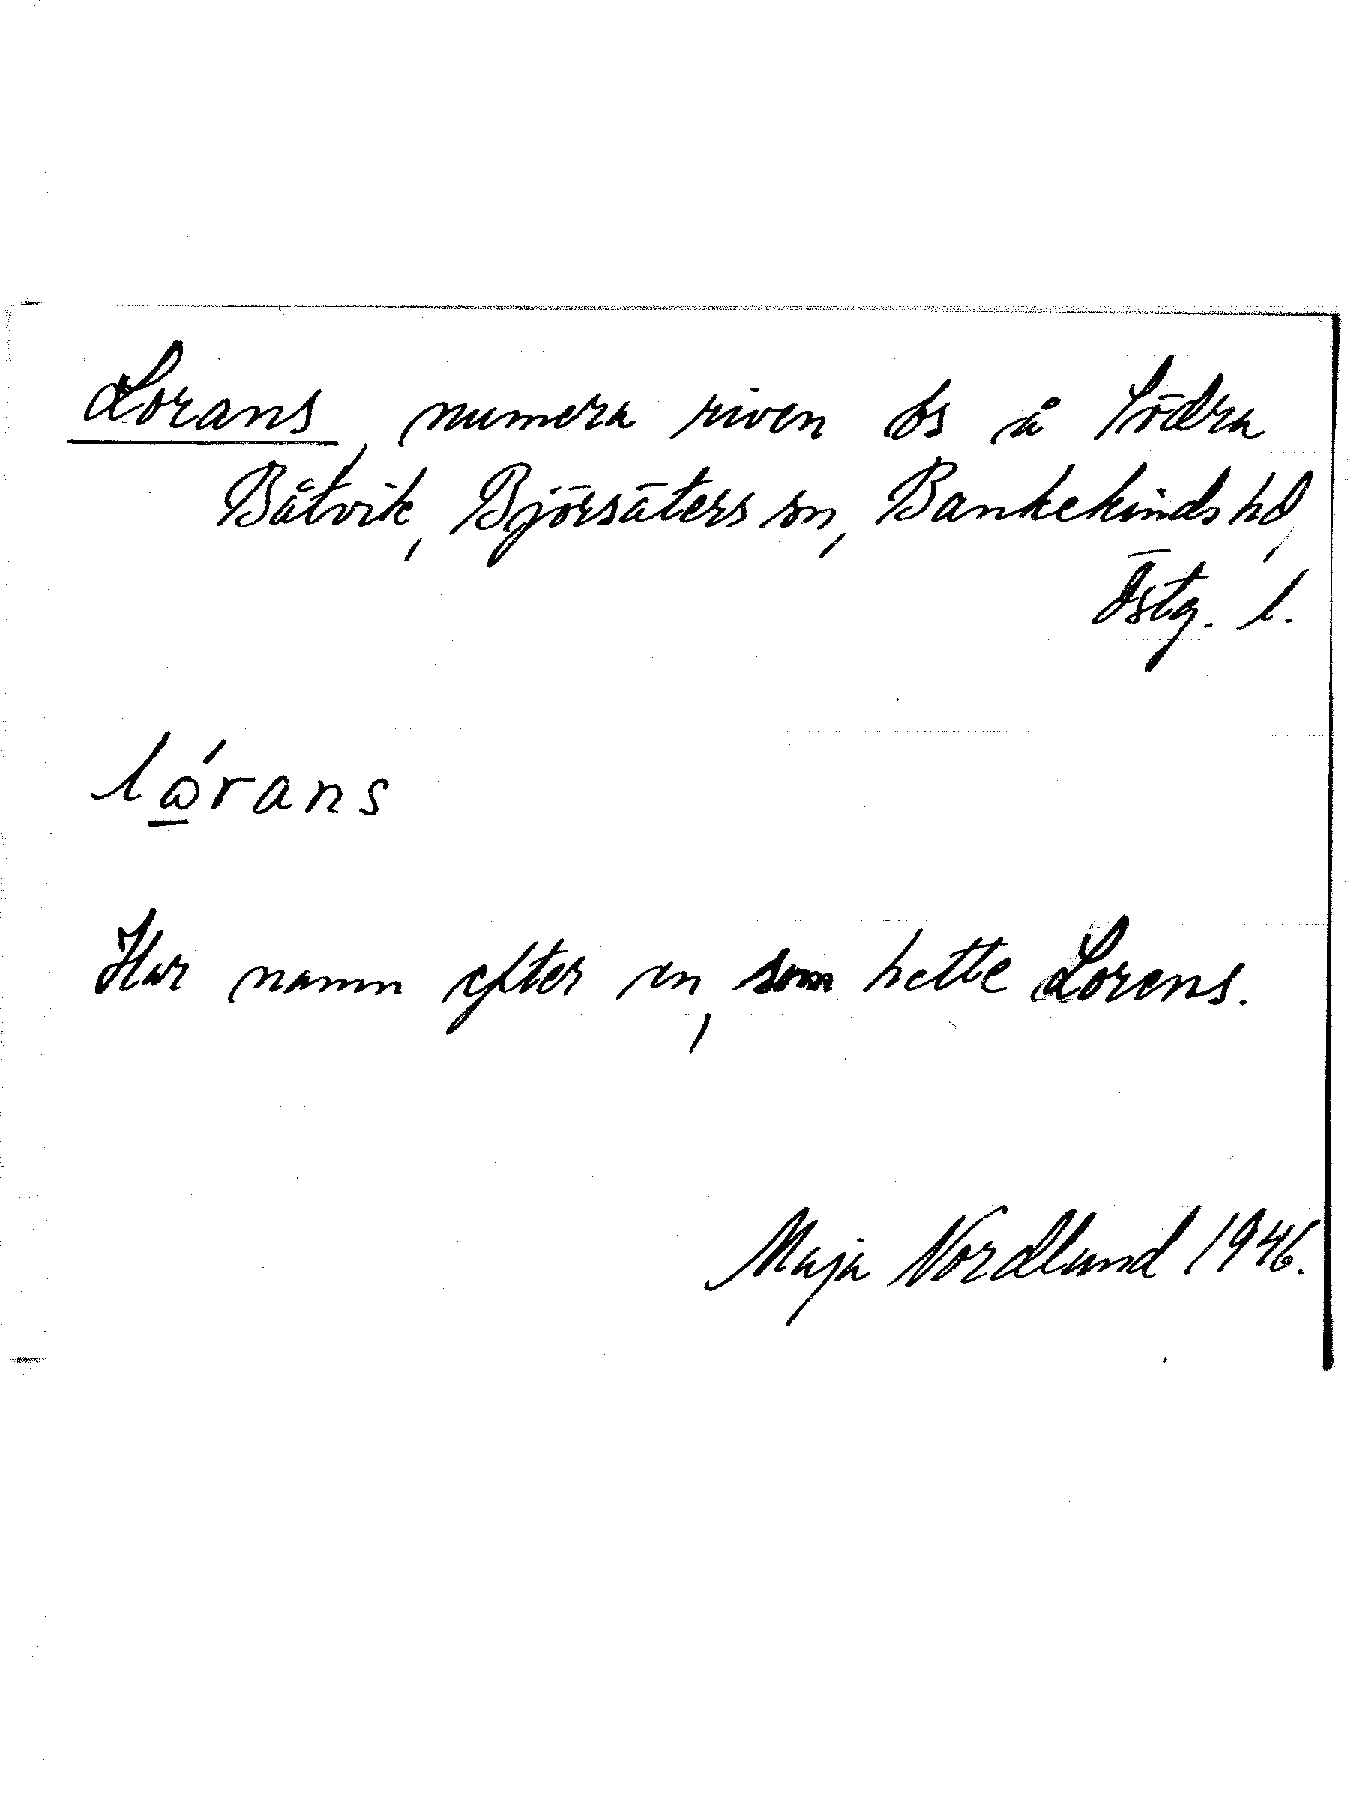 Lorans, numera riven bs å Södra
Båtvik, Björsäters sn, Bankekinds hd,
Östg. l.
lώrans
Har namn efter en, som hette Lorens.
Maja Nordlund 1946.